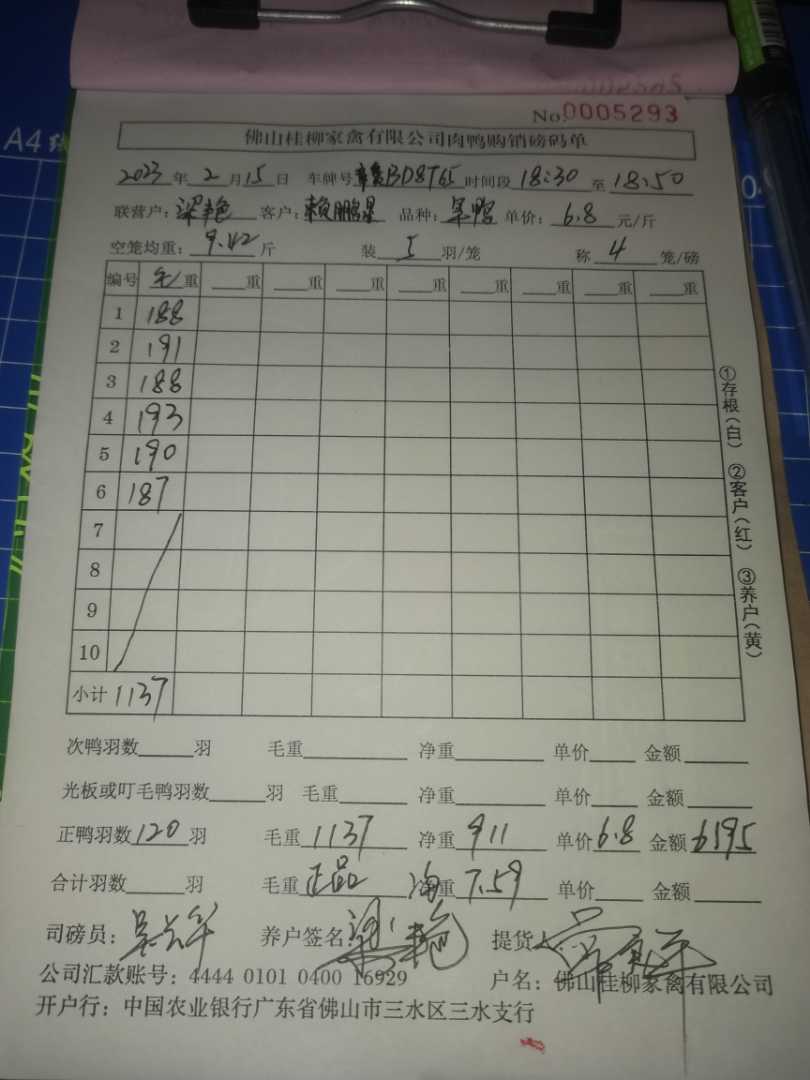 No.0005293
佛山桂柳家禽有限公司肉鸭购销磅码单
2023年2月15日 车牌号BD8T65 时间段18:30至18:50
联营户:梁艳 客户:赖鹏星 品种: 单价:6.8元/斤
空笼均重:9.42斤 装5羽/笼 称4笼/磅
编号 毛重 重 重 重 重 重 重 重 重
1 188
2 191
3 188
4 193
5 190
6 187
7
8
9
10
小计 1137
①存根(白) ②客户(红) ③养户(黄)
次鸭羽数 羽 毛重 净重 单价 金额
光板或叮毛鸭羽数 羽 毛重 净重 单价 金额
正鸭羽数120羽 毛重1137 净重911 单价6.8 金额6195
合计羽数 羽 毛重正品 净重7.59 单价 金额
司磅员: 养户签名:梁艳 提货人:
公司汇款账号:4444 0101 0400 16929 户名:佛山桂柳家禽有限公司
开户行:中国农业银行广东省佛山市三水区三水支行
A4